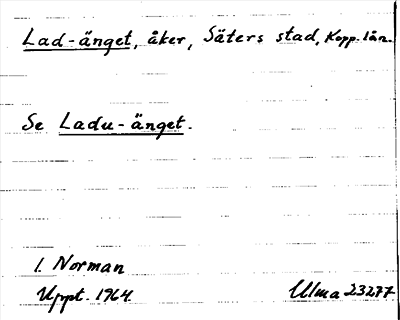 Lad-änget, åker, Säters stad, Kopp. län.
Se Ladu-änget.
I. Norman
Uppt. 1964.
Ulma 23277